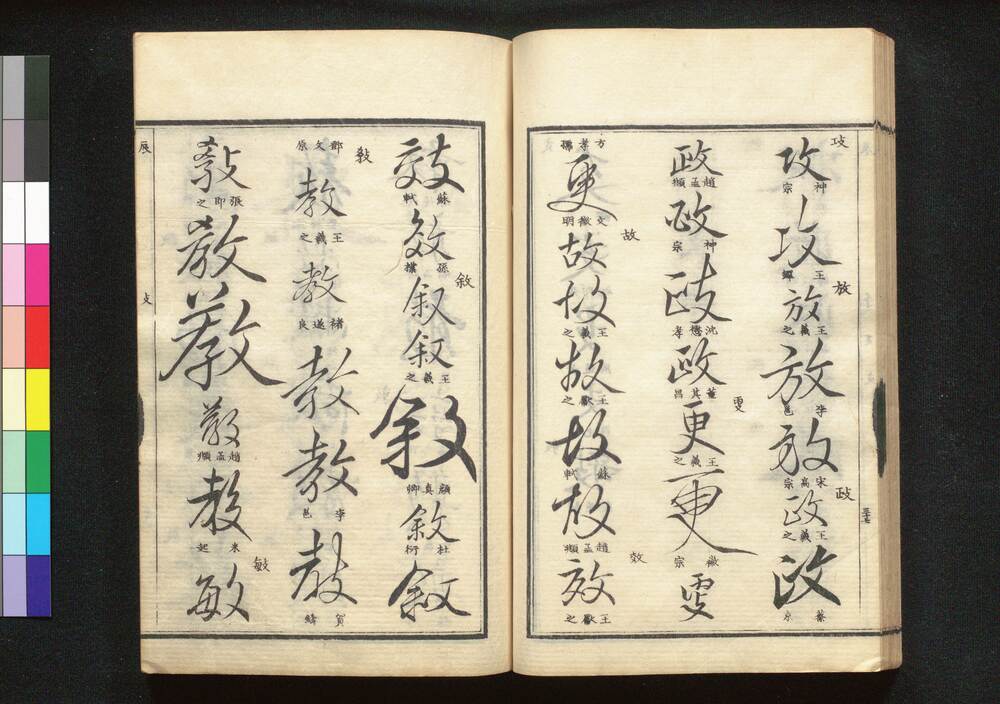 攻
攻
神宗
攻
王鐸
放
放
王羲之
放
李邕
放
宋高宗
政
政
王羲之
政
蔡京
政
趙孟頫
政
神宗
政
沈懋孝
政
董其昌
更
更
王羲之
更
徽宗
更
方孝孺
更
文徵明
故
故
故
王羲之
故
王獻之
故
蘇軾
故
趙孟頫
效
效
王獻之
效
蘇軾
效
孫
敘
叙
叙
王羲之
敘
顏真卿
敘
杜衍
敘
鄧文原
教
教
王羲之
教
褚遂良
教
教
李邕
教
賀
教
張即之
教
教
教
趙孟頫
教
米
敏
敏
辰
攴